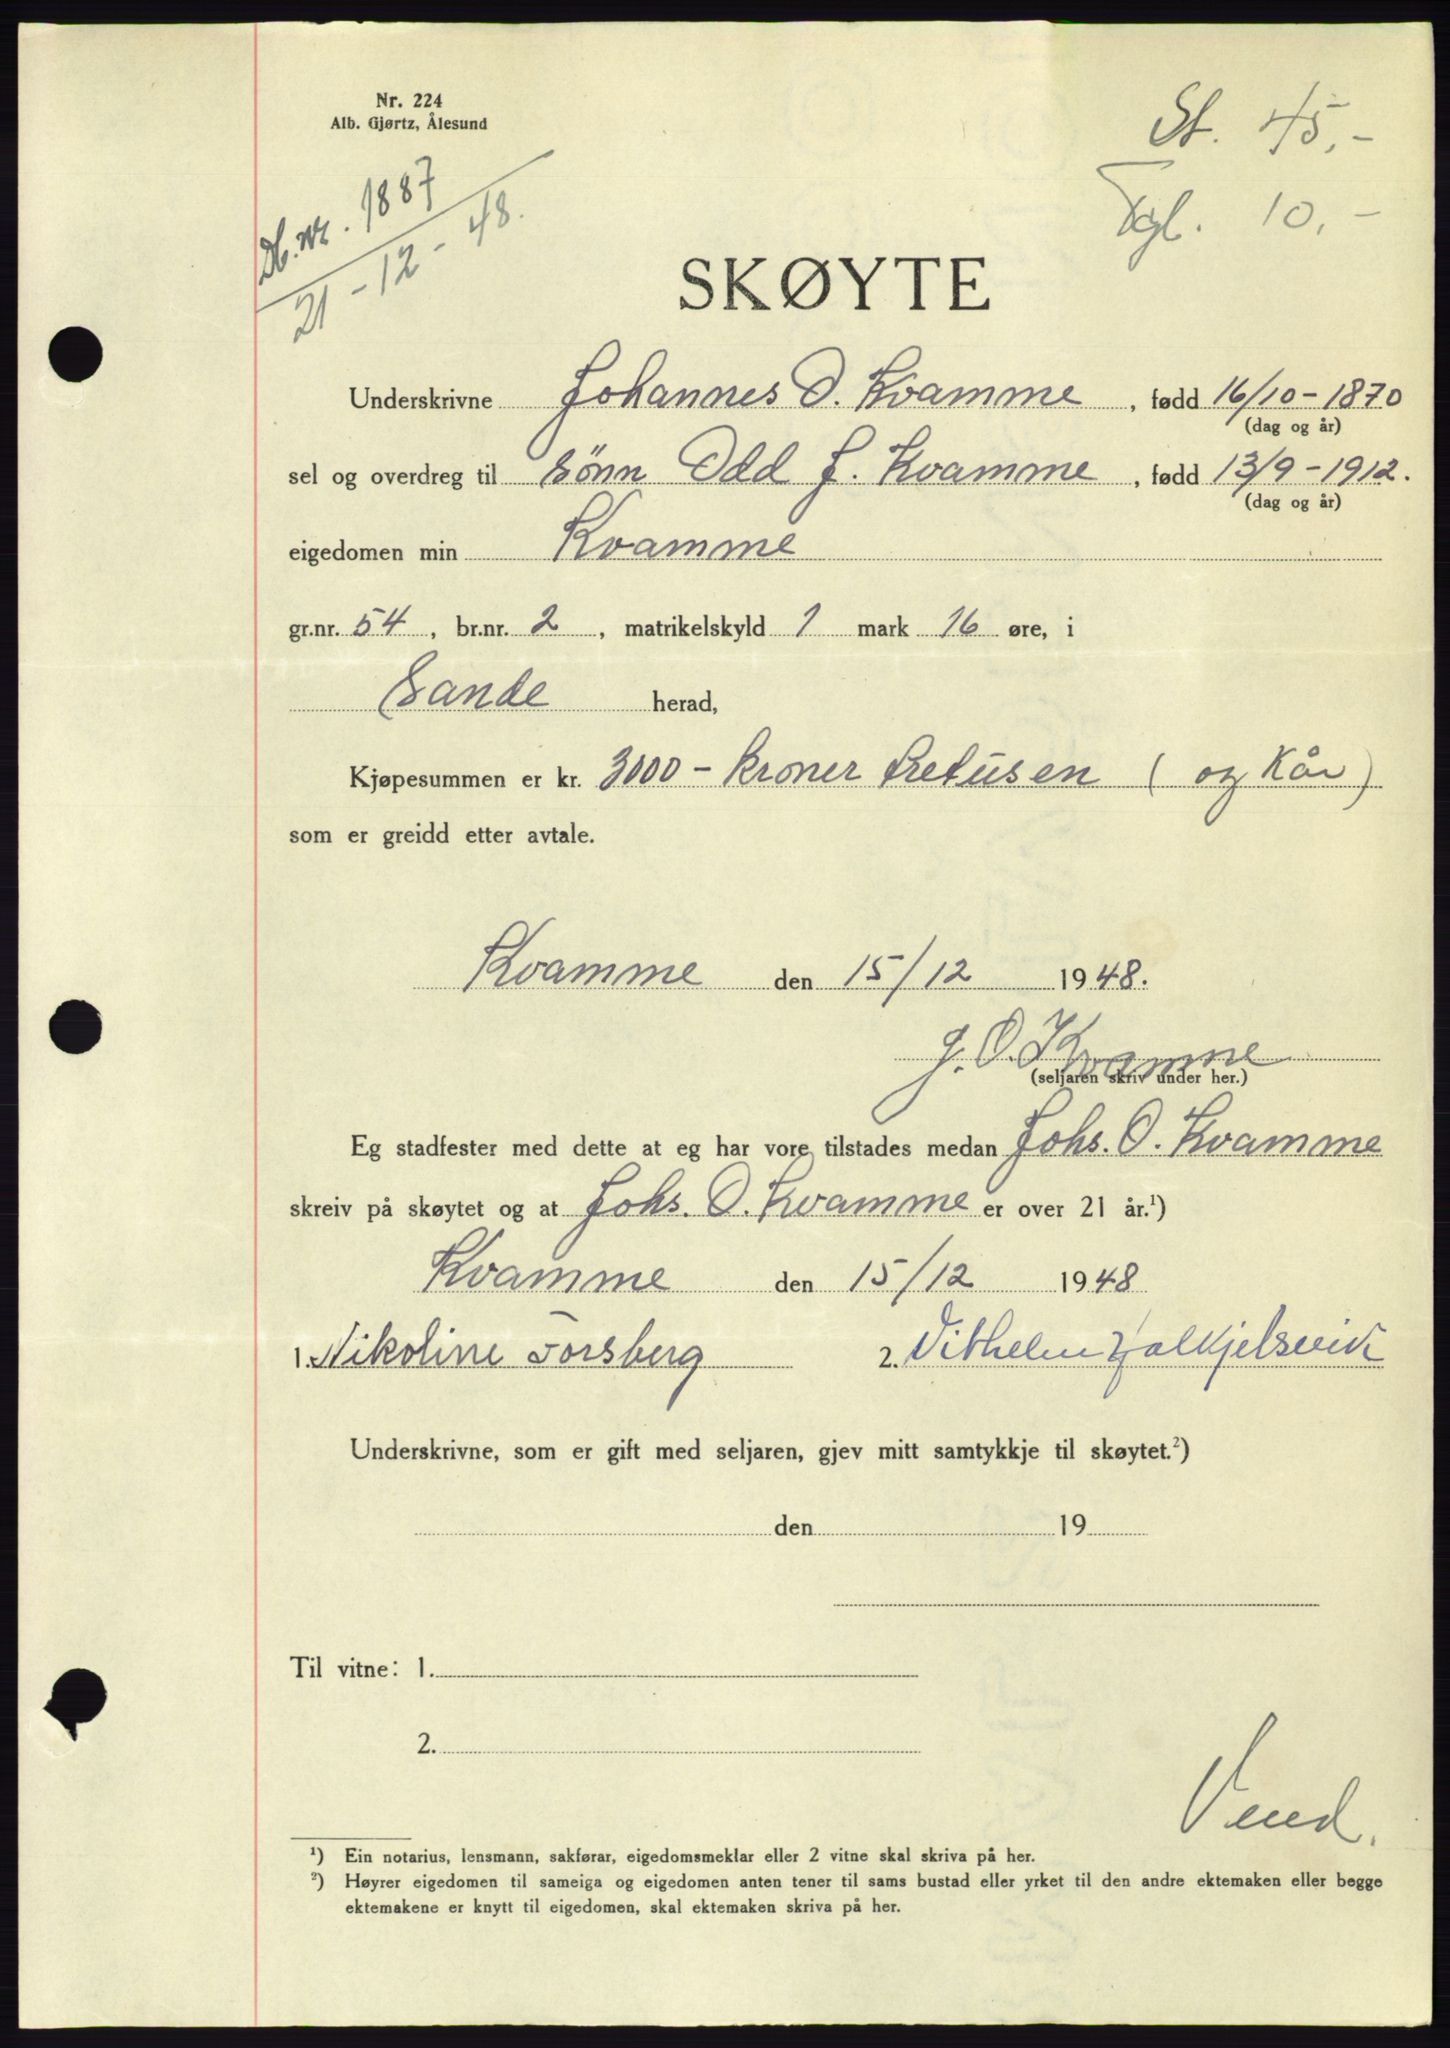 Nr. 224
Alb. Gjørtz, Ålesund
St. 45,-
Tgl. 10,-
Db. nr. 1887
21-12-48.
SKØYTE
Underskrivne Johannes O. Kvamme, fødd 16/10-1870
(dag og år)
sel og overdreg til sönn Odd J. Kvamme, fødd 13/9-1912.
(dag og år)
eigedomen min Kvamme
gr.nr. 54, br.nr. 2, matrikelskyld 1 mark 16 øre, i
Sande herad,
Kjøpesummen er kr. 3000 - kroner tretusen (og Kår)
som er greidd etter avtale.
Kvamme den 15/12 1948.
J. O. Kvamme
(seljaren skriv under her.)
Eg stadfester med dette at eg har vore tilstades medan Johs. O. Kvamme
skreiv på skøytet og at Johs. O. Kvamme er over 21 år.¹)
Kvamme den 15/12 1948
1. Nikoline Forsberg 2. Vilhelm
Underskrivne, som er gift med seljaren, gjev mitt samtykkje til skøytet.²)
den 19
Til vitne: 1.
2.
Vend.
¹) Ein notarius, lensmann, sakførar, eigedomsmeklar eller 2 vitne skal skriva på her.
²) Høyrer eigedomen til sameiga og eigedomen anten tener til sams bustad eller yrket til den andre ektemaken eller begge
ektemakene er knytt til eigedomen, skal ektemaken skriva på her.